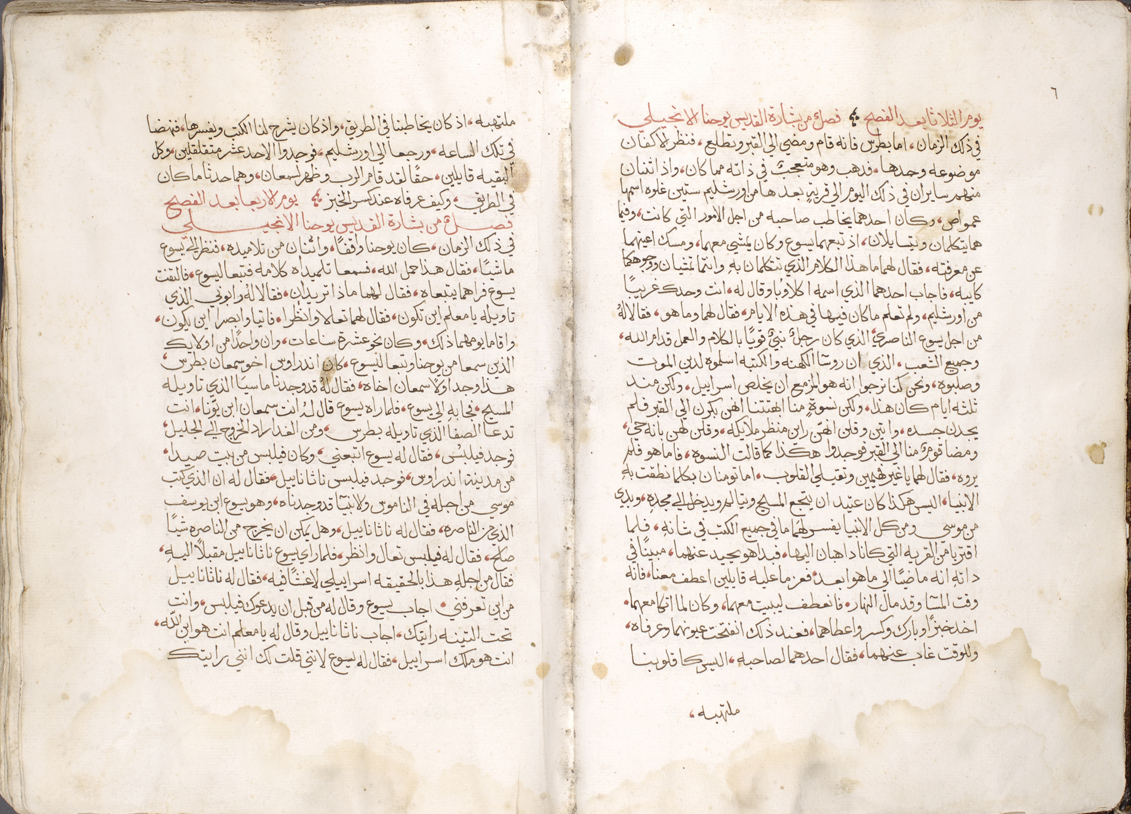 ٦
يوم الثلاثا بعد الفصح فصل من بشارة القديس يوحنا الانجيلي
في ذلك الزمان، اما بطرس فانه قام ومضى الى القبر وتطلع، فنظر الاكفان
موضوعه وحدها، فذهب وهو متعجبٌ في ذاته مما كان، واذ اثنان
منهم سايران في ذلك اليوم الى قرية بعدها من اورشليم ستين غلوه اسمها
عمواص، وكان احدهما يخاطب صاحبه من اجل الامور التي كانت، وفيما
هما يتكلمان ويتسايلان، اذ تبعهما يسوع وكان يمشي معهما، ومسك اعينهما
عن معرفته، فقال لهما ما هذا الكلام الذي تتكلمان به وانتما تمشيان ووجوهكما
كابيه، فاجاب احدهما الذي اسمه اكلاوبا وقال له، انت وحدك غريبًا
من اورشليم، ولم تعلم ما كان فيها في هذه الايام، فقال لهما وما هو، فقالا لهُ
من اجل يسوع الناصري الذي كان رجلٌ نبيٌ قويًا بالكلام والعمل قدام الله،
وجميع الشعب، الذي ان روسا الكهنه والكتبه اسلموه لدين الموت
وصلبوه، ونحن كنا نرجوا انه هو المزمع ان يخلص اسراييل، ولكن منذ
ثلثه ايام كان هذا، ولكن نسوةٍ منا ابهتننا انهن بكرن الى القبر فلم
يجدن جسده، واتين وقلن انهن راين منظر ملايكه، وقلن لهن بانه حي،
ومضا قوم منا الى القبر فوجدوا هكذا كما قالت النسوه، فاما هو فلم
يروه، فقال لهما يا غير فهيمين وتعب لي القلوب، اما تومنان بكلما نطقت به
الانبيا، اليس هكذا كان عتيد ان يتجع المسيح وينالم ويدخل الى مجده، وبدى
من موسى ومن كل الانبيا يفسر لهما ما في جميع الكتب في شانه، فلما
اقتربا من القريه التي كانا ذاهبان اليها، فبدا هو يحيد عنهما، مبينًا في
ذاته انه ماضيًا الى ما هو ابعد، فعزما عليه قايلين اعطف معنا، فانه
وقت المسا وقد مال النهار، فانعطف ليبيت معهما، وكان لما اتكا معهما،
اخذ خبزًا وبارك وكسر واعطاهما، فعند ذلك انفتحت عيونهما وعرفاه،
وللوقت غاب عنهما، فقال احدهما لصاحبه، اليس كا قلوبنا
ملتهبه،
ملتهبه، اذ كان يخاطبنا في الطريق، واذ كان يشرح لنا الكتب ويفسرها، فنهضا
في تلك الساعه، ورجعا الى اورشليم، فوجدوا الاحد عشر متقلقين، وكل
البقيه قايلين، حقًا لقد قام الرب وظهر لسمعان، وهما حدثا ما كان
في الطريق، وكيف عرفاه عند كسر الخبز يوم الاربعا بعد الفصح
فصل من بشارة القديس يوحنا الانجيلي
في ذلك الزمان، كان يوحنا واقفًا، واثنان من تلاميذه، فنظر الى يسوع
ماشيًا، فقال هذا حمل الله، فسمعا تلميذاه كلامه فتبعا ليسوع، فالتفت
يسوع فراهما يتبعاه، فقال لهما ماذا تريدان، فقالا له راتوني الذي
تاويله يا معلم اين تكون، فقال لهما تعالا وانظرا، فاتيا وابصرا اين يكون،
واقاما يومهما ذلك، وكان نحو عشرة ساعات، وان واحدًا من اولايك
الذين سمعا من يوحنا وتبعا ليسوع، كان اندراوس اخو سمعان بطرس
هذا وجد اولًا سمعان اخاه، فقال لهُ قد وجدنا ماسيا الذي تاويله
المسيح، فجا به الى يسوع، فلما راه يسوع قال لهُ انت سمعان ابن يونا، انت
تدعا الصفا الذي تاويله بطرس، ومن الغد اراد الخروج الى الجليل،
فوجد فيلبس، فقال له يسوع اتبعني، وكان فيلبس من بيت صيدا،
من مدينة اندراوس، فوجد فيلبس ناثانابيل، فقال له ان الذي كتب
موسى من اجله في الناموس والانبيا قد وجدناه، وهو يسوع ابن يوسف
الذي من الناصره، فقال له ناثانابيل، وهل يمكن ان يخرج من الناصره شيًا
صالح، فقال له فيلبس تعال وانظر، فلما راى يسوع ناثانابيل مقبلًا اليه،
فقال من اجله هذا بالحقيقه اسراييلي لا غش فيه، فقال له ناثانابيل
من اين تعرفني، اجاب يسوع وقال له من قبل ان يدعوك فيلبس، وانت
تحت التينه رايتك، اجاب ناثانابيل وقال له يا معلم انت هو ابن الله،
انت هو ملك اسراييل، فقال له يسوع لانني قلت لك انني رايتك